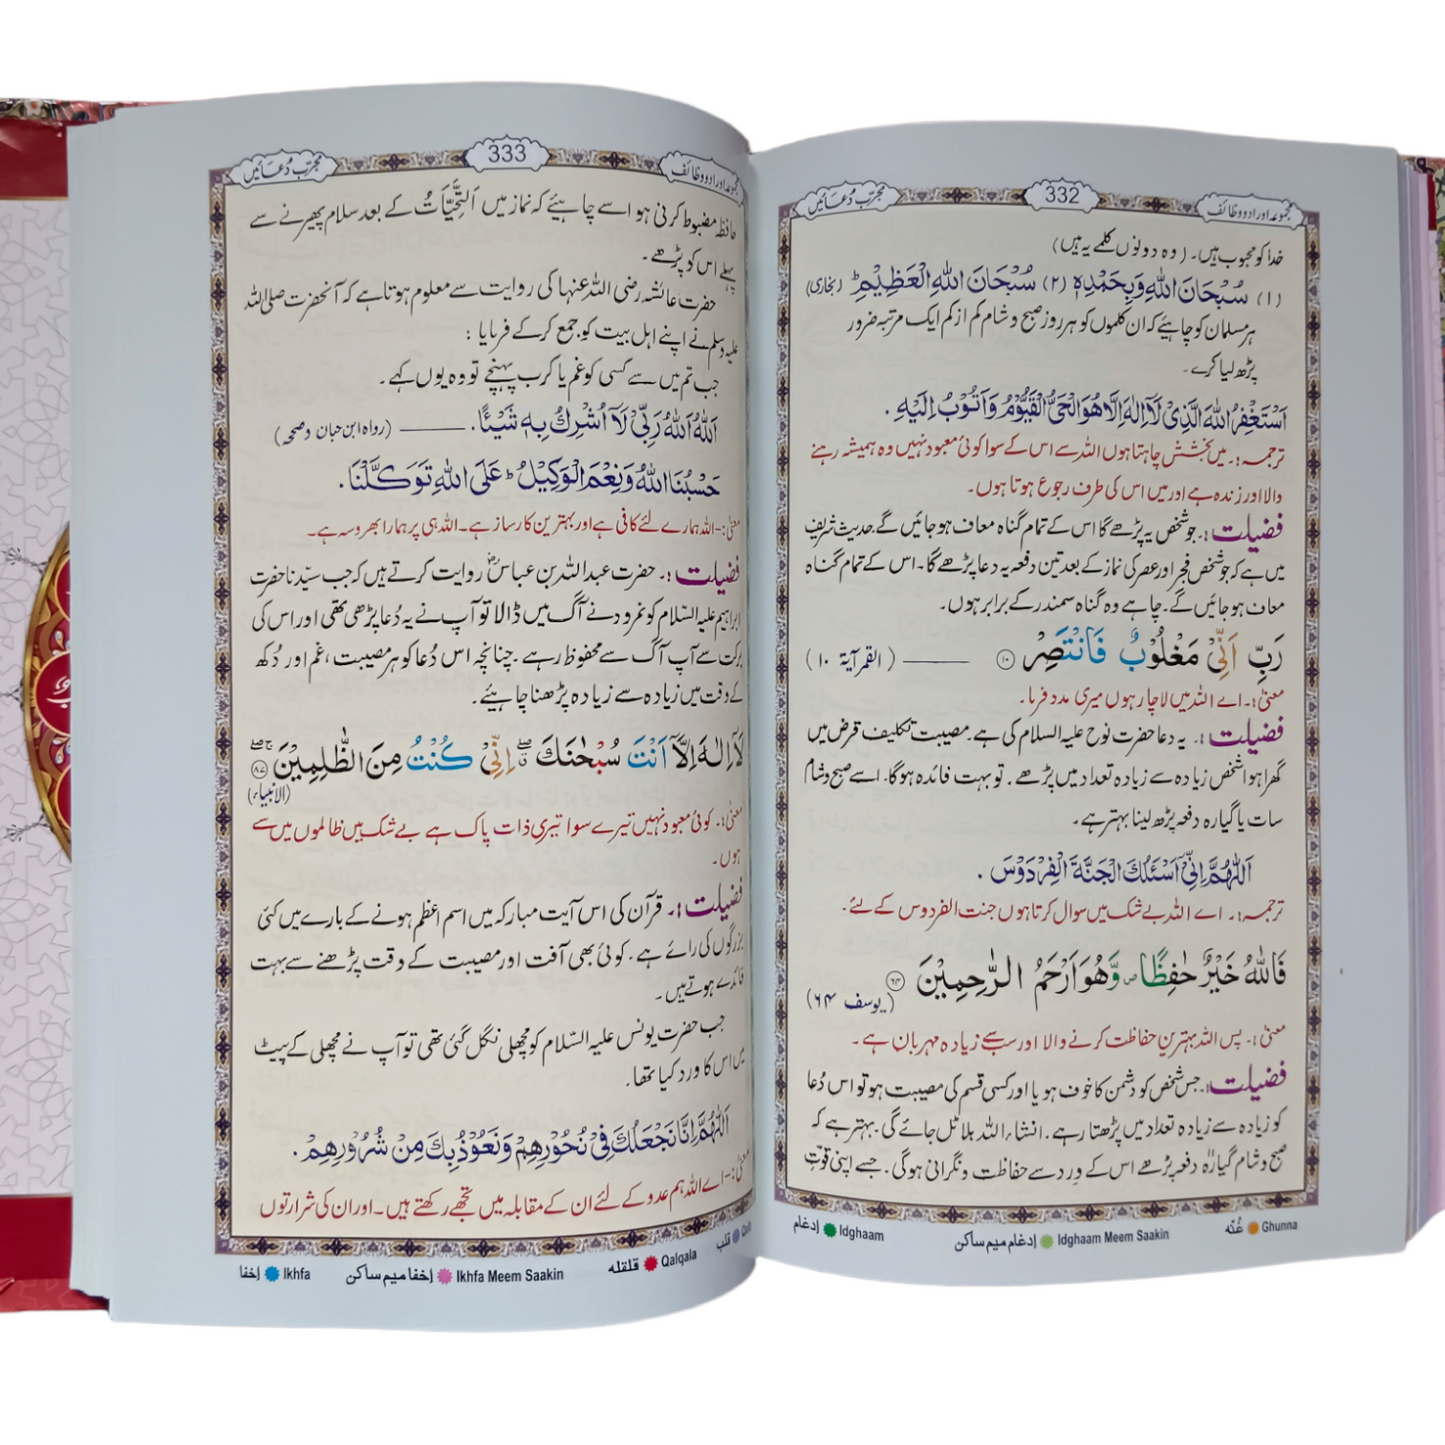 مجموعہ اوراد و وظائف
332
مجرّب دُعائیں
خدا کو محبوب ہیں۔ (وہ دونوں کلمے یہ ہیں)
(۱) سُبْحَانَ اللّٰهِ وَبِحَمْدِهٖ (۲) سُبْحَانَ اللّٰهِ الْعَظِيْمِ ؕ (بخاری)
ہر مسلمان کو چاہئے کہ ان کلموں کو ہر روز صبح و شام کم از کم ایک مرتبہ ضرور
پڑھ لیا کرے۔
اَسْتَغْفِرُ اللّٰهَ الَّذِيْ لَآ اِلٰهَ اِلَّا هُوَ الْحَيُّ الْقَيُّوْمُ وَاَتُوْبُ اِلَيْهِ۔
ترجمہ:۔ میں بخشش چاہتا ہوں اللہ سے اس کے سوا کوئی معبود نہیں وہ ہمیشہ رہنے
والا اور زندہ ہے اور میں اس کی طرف رجوع ہوتا ہوں۔
فضیلت:۔ جو شخص یہ پڑھے گا اس کے تمام گناہ معاف ہو جائیں گے۔ حدیث شریف
میں ہے کہ جو شخص فجر اور عصر کی نماز کے بعد تین دفعہ یہ دعا پڑھے گا۔ اس کے تمام گناہ
معاف ہو جائیں گے۔ چاہے وہ گناہ سمندر کے برابر ہوں۔
رَبِّ اَنِّيْ مَغْلُوْبٌ فَانْتَصِرْ ۱۰ ——— (القمر آیۃ ۱۰)
معنیٰ:۔ اے اللہ میں لاچار ہوں میری مدد فرما۔
فضیلت:۔ یہ دعا حضرت نوح علیہ السلام کی ہے۔ مصیبت تکلیف قرض میں
گھرا ہوا شخص زیادہ سے زیادہ تعداد میں پڑھے۔ تو بہت فائدہ ہوگا۔ اسے صبح و شام
سات یا گیارہ دفعہ پڑھ لینا بہتر ہے۔
اَللّٰهُمَّ اِنِّيْٓ اَسْئَلُكَ الْجَنَّةَ الْفِرْدَوْسَ۔
ترجمہ:۔ اے اللہ بے شک میں سوال کرتا ہوں جنت الفردوس کے لئے۔
فَاللّٰهُ خَيْرٌ حٰفِظًا ص وَّهُوَ اَرْحَمُ الرّٰحِمِيْنَ ۶۴ (یوسف ۶۴)
معنیٰ:۔ پس اللہ بہترین حفاظت کرنے والا اور سب سے زیادہ مہربان ہے۔
فضیلت:۔ جس شخص کو دشمن کا خوف ہو یا اور کسی قسم کی مصیبت ہو تو اس دُعا
کو زیادہ سے زیادہ تعداد میں پڑھتا رہے۔ انشاء اللہ بلا ٹل جائے گی۔ بہتر ہے کہ
صبح و شام گیارہ دفعہ پڑھے اس کے وِرد سے حفاظت و نگرانی ہوگی۔ جسے اپنی قوّتِ
Ghunna غُنّه
Idghaam Meem Saakin إدغام ميم ساكن
Idghaam إدغام
مجموعہ اوراد و وظائف
333
مجرّب دُعائیں
حافظہ مضبوط کرنی ہو اسے چاہیئے کہ نماز میں اَلتَّحِيَّاتُ کے بعد سلام پھیرنے سے
پہلے اس کو پڑھے۔
حضرت عائشہ رضی اللہ عنہا کی روایت سے معلوم ہوتا ہے کہ آنحضرت صلی اللہ
علیہ وسلم نے اپنے اہل بیت کو جمع کر کے فرمایا :
جب تم میں سے کسی کو غم یا کرب پہنچے تو وہ یوں کہے۔
اَللّٰهُ اَللّٰهُ رَبِّيْ لَآ اُشْرِكُ بِهٖ شَيْئًا۔ ——— (رواہ ابن حبان وصححہ)
حَسْبُنَا اللّٰهُ وَنِعْمَ الْوَكِيْلُ ؕ عَلَى اللّٰهِ تَوَكَّلْنَا۔
معنیٰ:۔ اللہ ہمارے لئے کافی ہے اور بہترین کارساز ہے۔ اللہ ہی پر ہمارا بھروسہ ہے۔
فضیلت:۔ حضرت عبداللہ بن عباسؓ روایت کرتے ہیں کہ جب سیّدنا حضرت
ابراہیم علیہ السّلام کو نمرود نے آگ میں ڈالا تو آپ نے یہ دُعا پڑھی تھی اور اس کی
برکت سے آپ آگ سے محفوظ رہے۔ چنانچہ اس دُعا کو ہر مصیبت، غم اور دُکھ
کے وقت میں زیادہ سے زیادہ پڑھنا چاہیئے۔
لَآ اِلٰهَ اِلَّآ اَنْتَ سُبْحٰنَكَ ۖ اِنِّيْ كُنْتُ مِنَ الظّٰلِمِيْنَ ۸۷
(الانبیاء)
معنیٰ:۔ کوئی معبود نہیں تیرے سوا تیری ذات پاک ہے بے شک میں ظالموں میں سے
ہوں۔
فضیلت:۔ قرآن کی اس آیت مبارکہ میں اسم اعظم ہونے کے بارے میں کئی
بزرگوں کی رائے ہے۔ کوئی بھی آفت اور مصیبت کے وقت پڑھنے سے بہت
فائدے ہوتے ہیں۔
جب حضرت یونس علیہ السّلام کو مچھلی نگل گئی تھی تو آپ نے مچھلی کے پیٹ
میں اس کا ورد کیا تھا۔
اَللّٰهُمَّ اِنَّا نَجْعَلُكَ فِيْ نُحُوْرِهِمْ وَنَعُوْذُ بِكَ مِنْ شُرُوْرِهِمْ۔
معنیٰ:۔ اے اللہ ہم عدو کے لئے ان کے مقابلہ میں تجھے رکھتے ہیں۔ اور ان کی شرارتوں
قلب
Qalqala قلقله
Ikhfa Meem Saakin إخفا ميم ساكن
Ikhfa إخفا